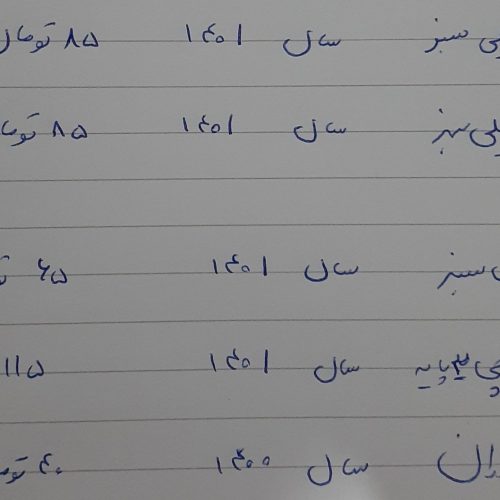 سبز سال ۱۴۰۱ ۸۵ تومان
سبز سال ۱۴۰۱ ۸۵ توما
سبز سال ۱۴۰۱ ۶۵
پایه سال ۱۴۰۱ ۱۱۵
سال ۱۴۰۰ ۴۰ توم